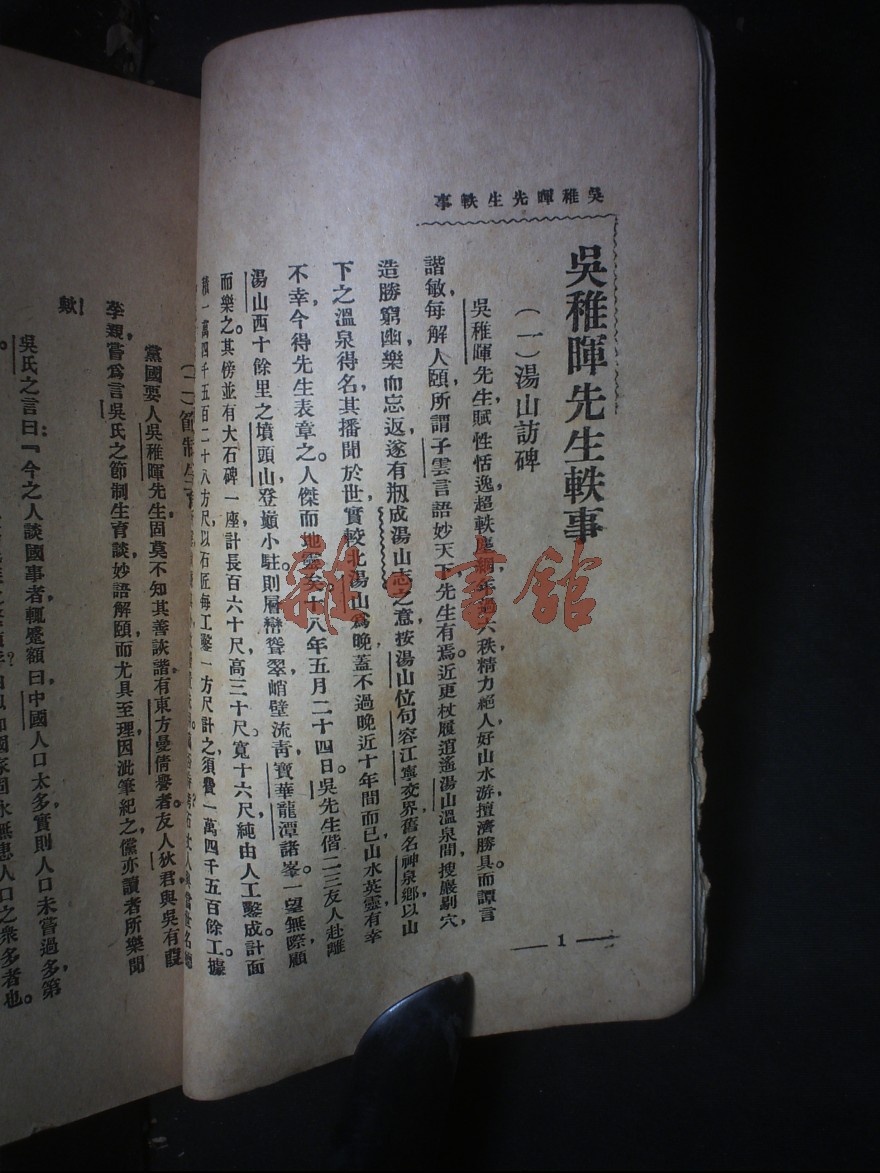 吳稚暉先生軼事
吳稚暉先生軼事
(一)湯山訪碑
吳稚暉先生賦性恬逸,超軼塵網,年六秩,精力絕人,好山水游,擅濟勝具,而譚言
諧敏,每解人頤,所謂子雲言語妙天下,先生有焉。近更杖履逍遙湯山溫泉間,搜巖剔穴,
造勝窮幽,樂而忘返,遂有刱成湯山志之意,按湯山位句容江寧交界,舊名神泉鄉,以山
下之溫泉得名,其播聞於世,實較北湯山爲晚,蓋不過晚近十年間而已,山水英靈,有幸
不幸,今得先生表章之。人傑而地靈矣。十八年五月二十四日。吳先生偕二三友人,赴離
湯山西十餘里之墳頭山,登巔小駐,則層巒聳翠,峭壁流靑,寶華龍潭諸峯,一望無際,顧
而樂之。其傍並有大石碑一座,計長百六十尺,高三十尺,寬十六尺,純由人工鑿成,計面
積一萬四千五百二十八方尺,以石匠每工鑿一方尺計之,須費一萬四千五百餘工,據
1
黨國要人吳稚暉先生,固莫不知其善詼諧,有東方曼倩譽者。友人狄君,與吳有葭
莩親,嘗爲言吳氏之節制生育談,妙語解頤,而尤具至理,因泚筆紀之,儻亦讀者所樂聞
歟!
吳氏之言曰:『今之人談國事者,輒蹙額曰,中國人口太多,實則人口未嘗過多,第
國家固永無患人口之衆多者也。
雜·書館